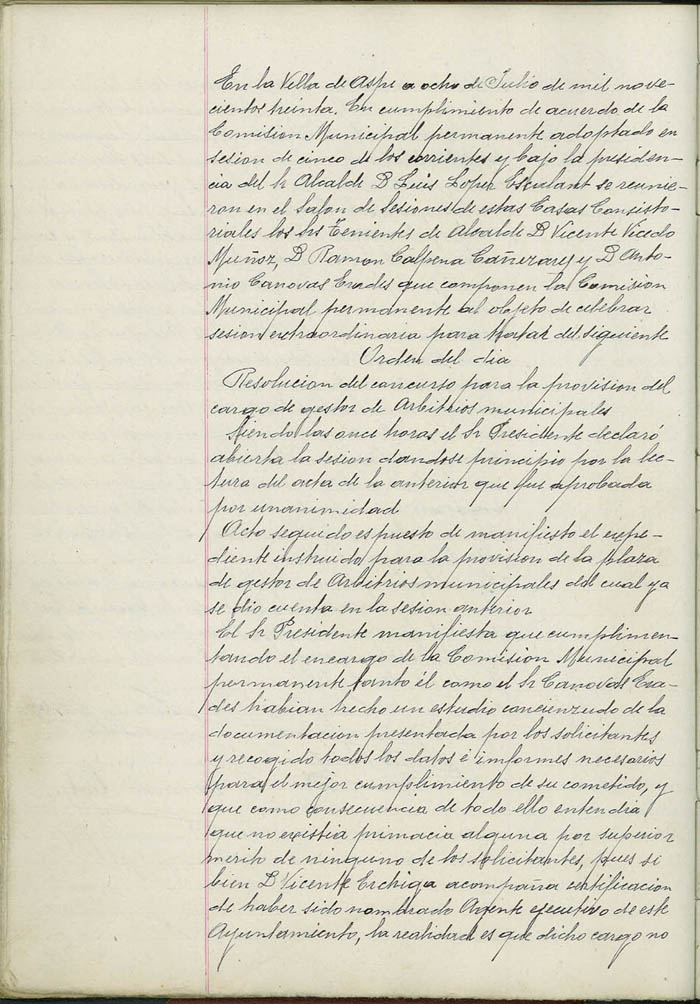 En la Villa de Aspe a ocho de Julio de mil nove-
cientos treinta. En cumplimiento de acuerdo de la
Comision Municipal permanente adoptado en
sesion de cinco de los corrientes y bajo la presiden-
cia del Sr Alcalde D Luis Lopez Esculant se reunie-
ron en el Salon de Sesiones de estas Casas Consisto-
riales los Srs Tenientes de Alcalde D Vicente Vicedo
Muñoz, D Ramon Calpena Cañizares y D Anto-
nio Canovas Erades que componen la Comision
Municipal permanente al objeto de celebrar
sesion extraordinaria para tratar del siguiente
Orden del dia
Resolucion del concurso para la provision del
cargo de gestor de Arbitrios municipales
Siendo las once horas el Sr Presidente declaró
abierta la sesion dandose principio por la lec-
tura del acta de la anterior que fue aprobada
por unanimidad
Acto seguido es puesto de manifiesto el expe-
diente instruido para la provision de la plaza
de gestor de Arbitrios municipales del cual ya
se dio cuenta en la sesion anterior
El Sr Presidente manifiesta que cumplimen-
tando el encargo de la Comision Municipal
permanente tanto él como el Sr Canovas Era-
des habian hecho un estudio concienzudo de la
documentacion presentada por los solicitantes
y recogido todos los datos é informes necesarios
para el mejor cumplimiento de su cometido, y
que como consecuencia de todo ello entendia
que no existia primacia alguna por superior
merito de ninguno de los solicitantes, pues si
bien D Vicente acompaña certificacion
de haber sido nombrado Agente ejecutivo de este
Ayuntamiento, la realidad es que dicho cargo no